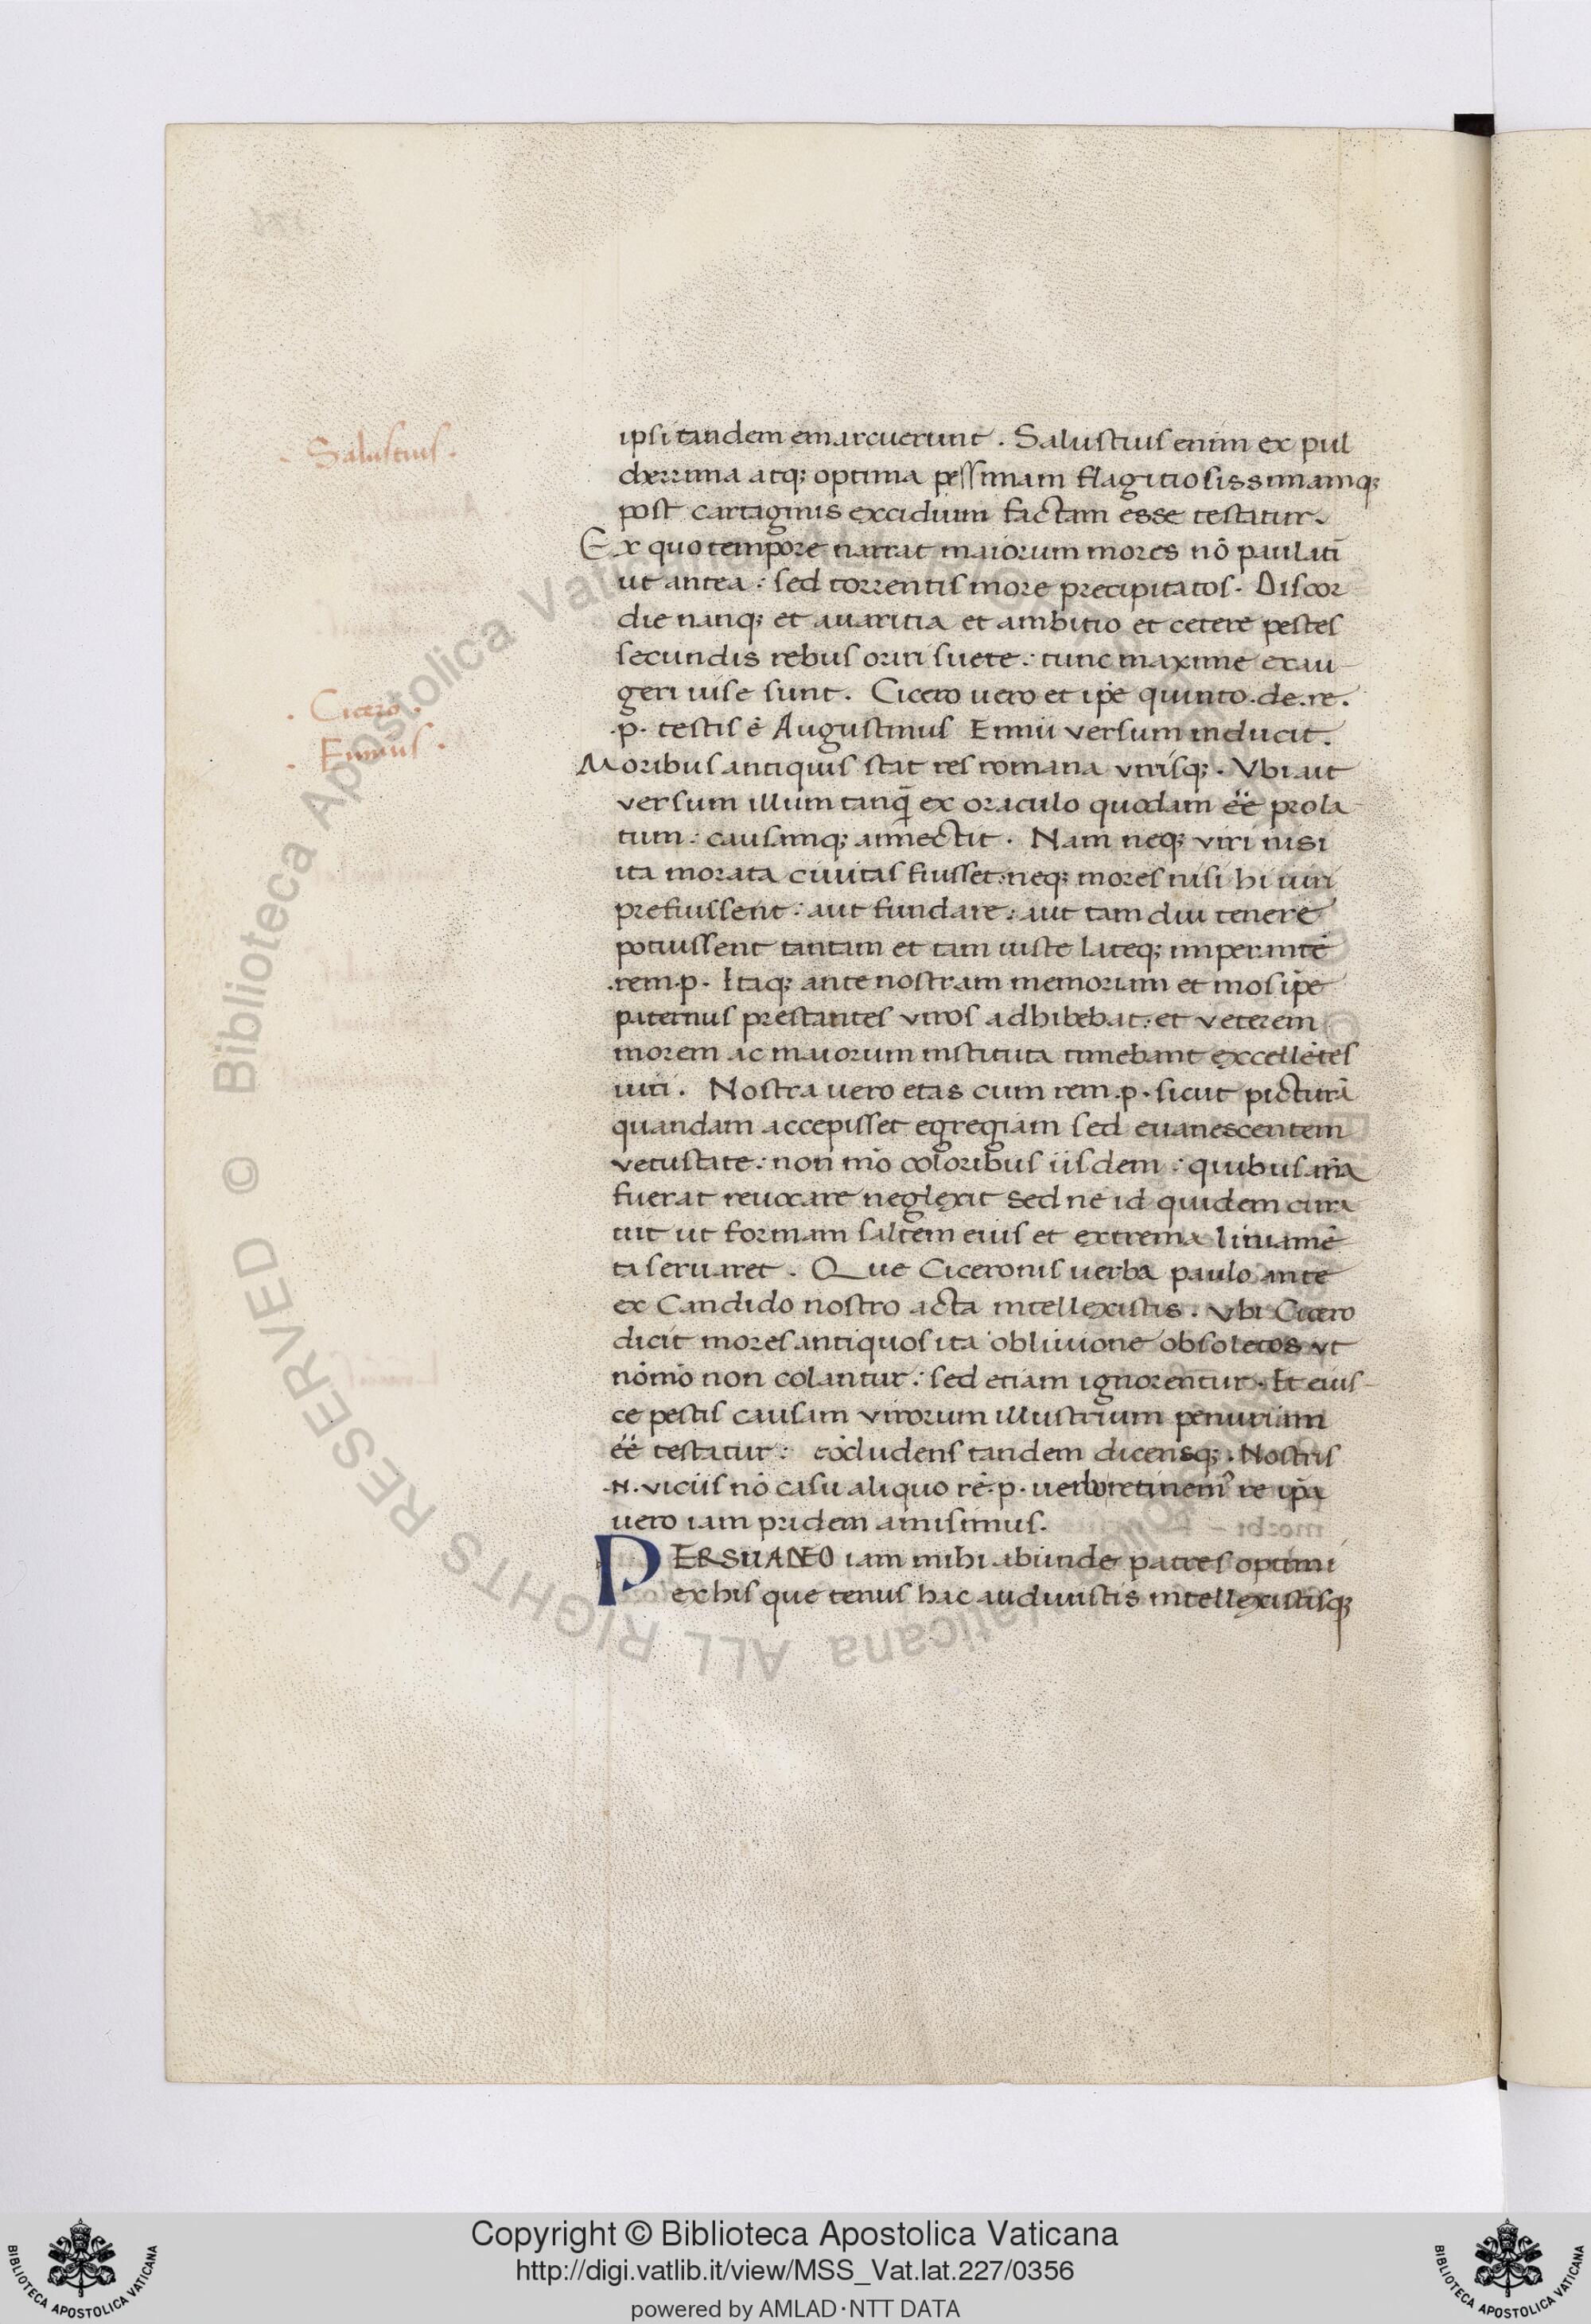 · Salustius ·
· Cicero ·
· Ennius ·
ipsi tandem emarcuerunt . Salustius enim ex pul
cherrima atq; optima pessimam flagitiosissimamq;
post cartaginis excidium factam esse testatur.
Ex quo tempore narrat maiorum mores nō paulatī
ut antea : sed torrentis more precipitatos . Discor
die nanq; et auaritia et ambitio et cetere pestes
secundis rebus oriri suete : tunc maxime exau-
geri uise sunt . Cicero uero et ip̄e quinto .de.re.
.p. testis ē Augustinus Ennii versum inducit .
Moribus antiquis stat res romana virisq; . Vbi ait
versum illum tanq̄ ex oraculo quodam eē prola-
tum : causamq; annectit . Nam neq; viri nisi
ita morata ciuitas fuisset : neq; mores nisi hi uiri
prefuissent : aut fundare : aut tam diu tenere
potuissent tantam et tam iuste lateq; imperantē
.rem.p. Itaq; ante nostram memoriam et mos ip̄e
paternus prestantes viros adhibebat : et veterem
morem ac maiorum instituta tinebant excellētes
uiri . Nostra uero etas cum rem.p. sicut picturā
quandam accepisset egregiam sed euanescentem
vetustate : non mō coloribus iisdem : quibus
fuerat reuocare neglexit sed ne id quidem cura
uit ut formam saltem eius et extrema liniamē
ta seruaret . Que Ciceronis uerba paulo ante
ex Candido nostro acta intellexistis . Vbi Cicero
dicit mores antiquos ita obliuione obsoletos vt
nōmō non colantur : sed etiam ignorentur . Et eius-
ce pestis causam virorum illustrium penuriam
eē testatur : cōcludens tandem dicensq; . Nostris
.N. viciis nō casu aliquo rē.p. uerbo retinem' re ip̄a
uero iam pridem amisimus.
PERSUADEO iam mihi abunde patres optimi
ex his que tenus hac audiuistis intellexistisq;
© Biblioteca Apostolica Vaticana ALL RIGHTS RESERVED
Copyright © Biblioteca Apostolica Vaticana
http://digi.vatlib.it/view/MSS_Vat.lat.227/0356
powered by AMLAD·NTT DATA
BIBLIOTECA APOSTOLICA VATICANA
BIBLIOTECA APOSTOLICA VATICANA